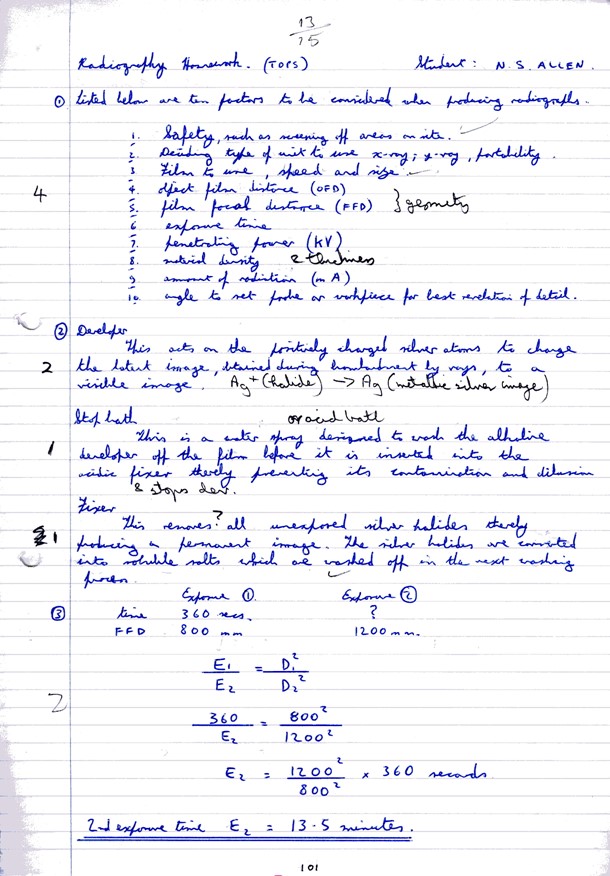 13
15
Radiography Homework. (TOPS) Student: N.S. ALLEN.
① Listed below are ten factors to be considered when producing radiographs.
1. Safety, such as screening off areas on site.
2. Deciding type of unit to use x-ray; γ-ray, portability.
3 Film to use, speed and size.
4. Object film distance (OFD)
5. film focal distance (FFD) } geometry
6 exposure time
7. penetrating power (kV)
8. material density & thickness
9 amount of radiation (mA)
10. angle to set probe or workpiece for best revelation of detail.
4
② Developer
This acts on the positively charged silver atoms to change
2 the latent image, obtained during bombardment by rays, to a
visible image. Ag+ (halide) → Ag (metallic silver image)
Stop bath or acid bath
1 This is a water spray designed to wash the alkaline
developer off the film before it is inserted into the
acidic fixer thereby preventing its contamination and dilusion
& stops dev.
Fixer
1 This removes? all unexposed silver halides thereby
producing a permanent image. The silver halides are converted
into soluble salts which are washed off in the next washing
process.
Exposure ① Exposure ②
③ time 360 secs. ?
FFD 800 mm 1200 mm.
E1 / E2 = D1² / D2²
2
360 / E2 = 800² / 1200²
E2 = 1200² / 800² × 360 seconds
2nd exposure time E2 = 13.5 minutes.
101